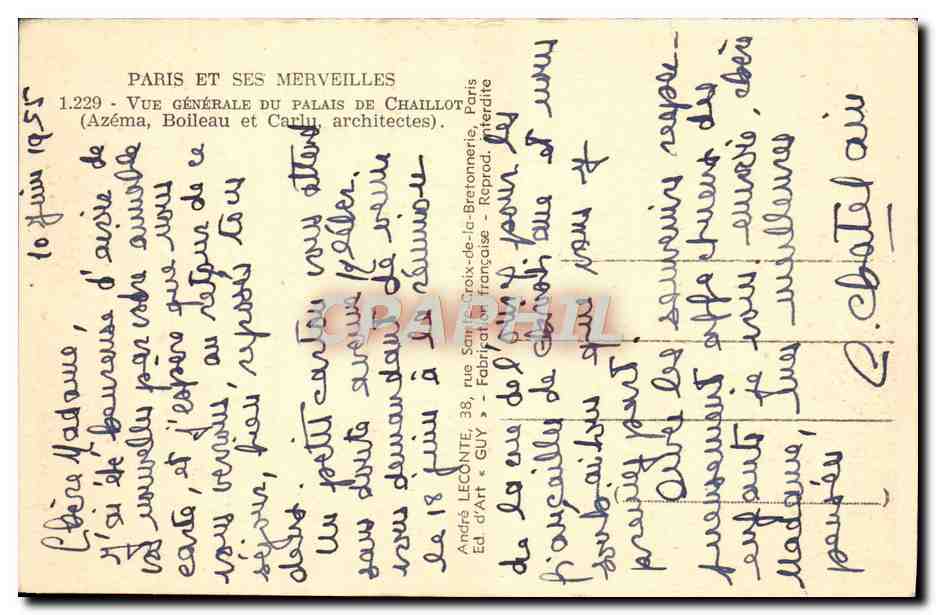 PARIS ET SES MERVEILLES
1.229 - VUE GÉNÉRALE DU PALAIS DE CHAILLOT
(Azéma, Boileau et Carlu, architectes).
10 Juin 1955
Chère Madame,
J'ai été heureuse d'avoir de
vos nouvelles par votre aimable
carte, et j'espère que nous
vous verrons, au retour de ce
séjour, bien reposés tous
deux.
Un petit carton vous attend
sans doute avenue Kléber.
vous demandant de venir
le 18 juin à la réunion
de la rue de pour les
fiançailles de Christiane et nous
souhaitons que vous y
preniez part.
Avec les souvenirs respec-
tueusement affectueux des
enfants je vous envoie, chère
Madame, mes meilleures
pensées,
C. Chatelain
André LECONTE, 38, rue Sainte-Croix-de-la-Bretonnerie, Paris
Ed. d'Art « GUY » - Fabrication française - Reprod. interdite
CPAPHIL